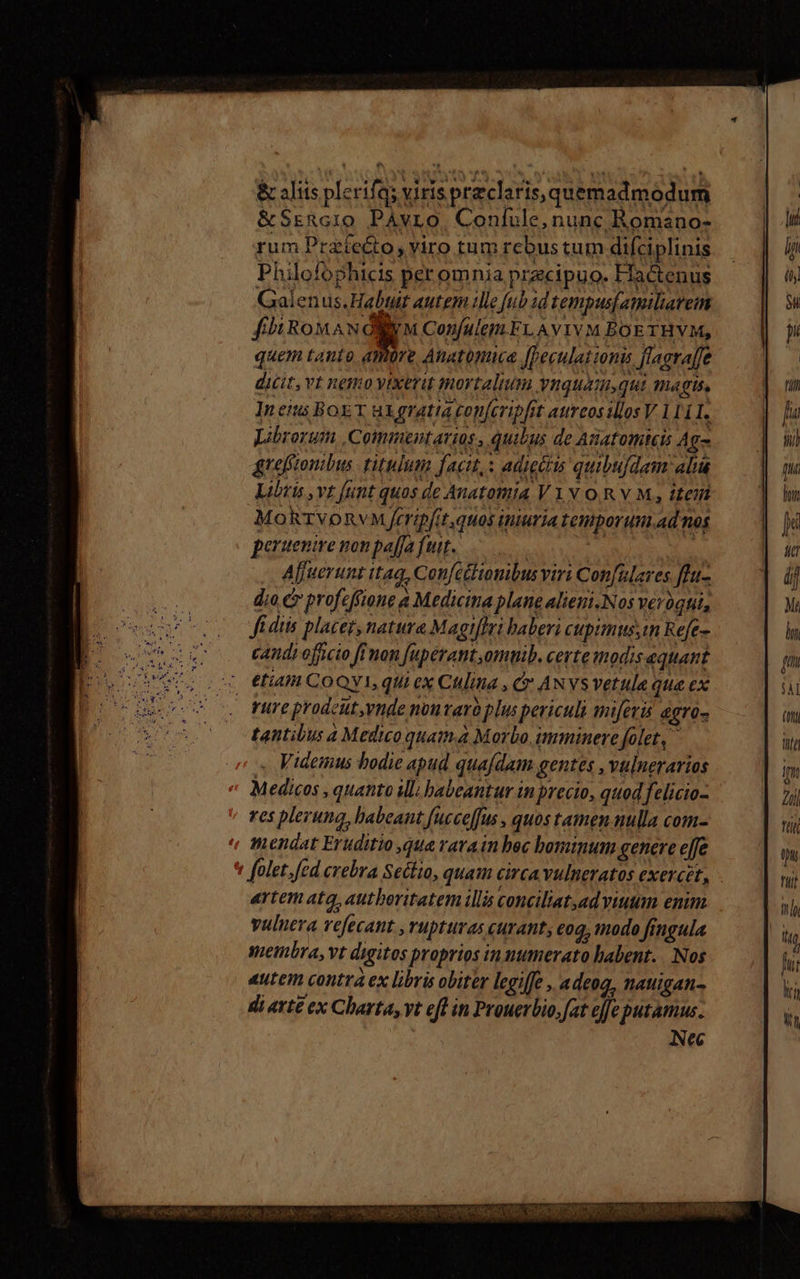 & aliis plerisq; viris præclaris, quemadmodum
& Sergio Pavlo Consule, nunc Romano-
rum Præfecto, viro tum rebus tum disciplinis
Philosophicis per omnia præcipuo. Hactenus
Galenus. Habuit autem ille sub id tempus familiarem
sibi Roman M Consulem FLAVIVM BOETHVM,
quem tanto amore Anatomicæ speculationis flagrasse
dicit, vt nemo vixerit mortalium vnquam, qui magis.
In eius BOET HI gratiā conscripsit aureos illos VIIII.
Librorum Commentarios, quibus de Anatomicis Ag-
gressionibus titulum facit, : adiectis quibusdam aliis
Libris, vt sunt quos de Anatomia VIVORVM, item
MORTVORVM scripsit, quos iniuria temporum ad nos
peruenire non passa fuit.
Affuerunt itaq, Confectionibus viri Consulares stu-
dio & professione à Medicina plane alieni. Nos veròqui,
si diis placet, naturæ Magistri haberi cupimus, in Rese-
candi officio si non superant, omnib. certe modis æquant
etiam COQVI, qui ex Culina, & ANVS vetulæ quæ ex
rure prodeūt, vnde non rarò plus periculi miseris ægro-
tantibus à Medico quam à Morbo imminere solet,
" . Videmus hodie apud quasdam gentes, vulnerarios
" Medicos, quanto illi habeantur in precio, quod felicio-
" res plerunq, habeant successus, quos tamen nulla com-
" mendat Eruditio, quæ rara in hoc hominum genere esse
" solet, sed crebra Sectio, quam circa vulneratos exercēt,
artem atq, authoritatem illis conciliat, ad viuum enim
vulnera resecant, rupturas curant, eoq, modo singula
membra, vt digitos proprios in numerato habent. Nos
autem contrà ex libris obiter legisse, adeoq, nauigan-
di artē ex Charta, vt est in Prouerbio, sat esse putamus.
Nec